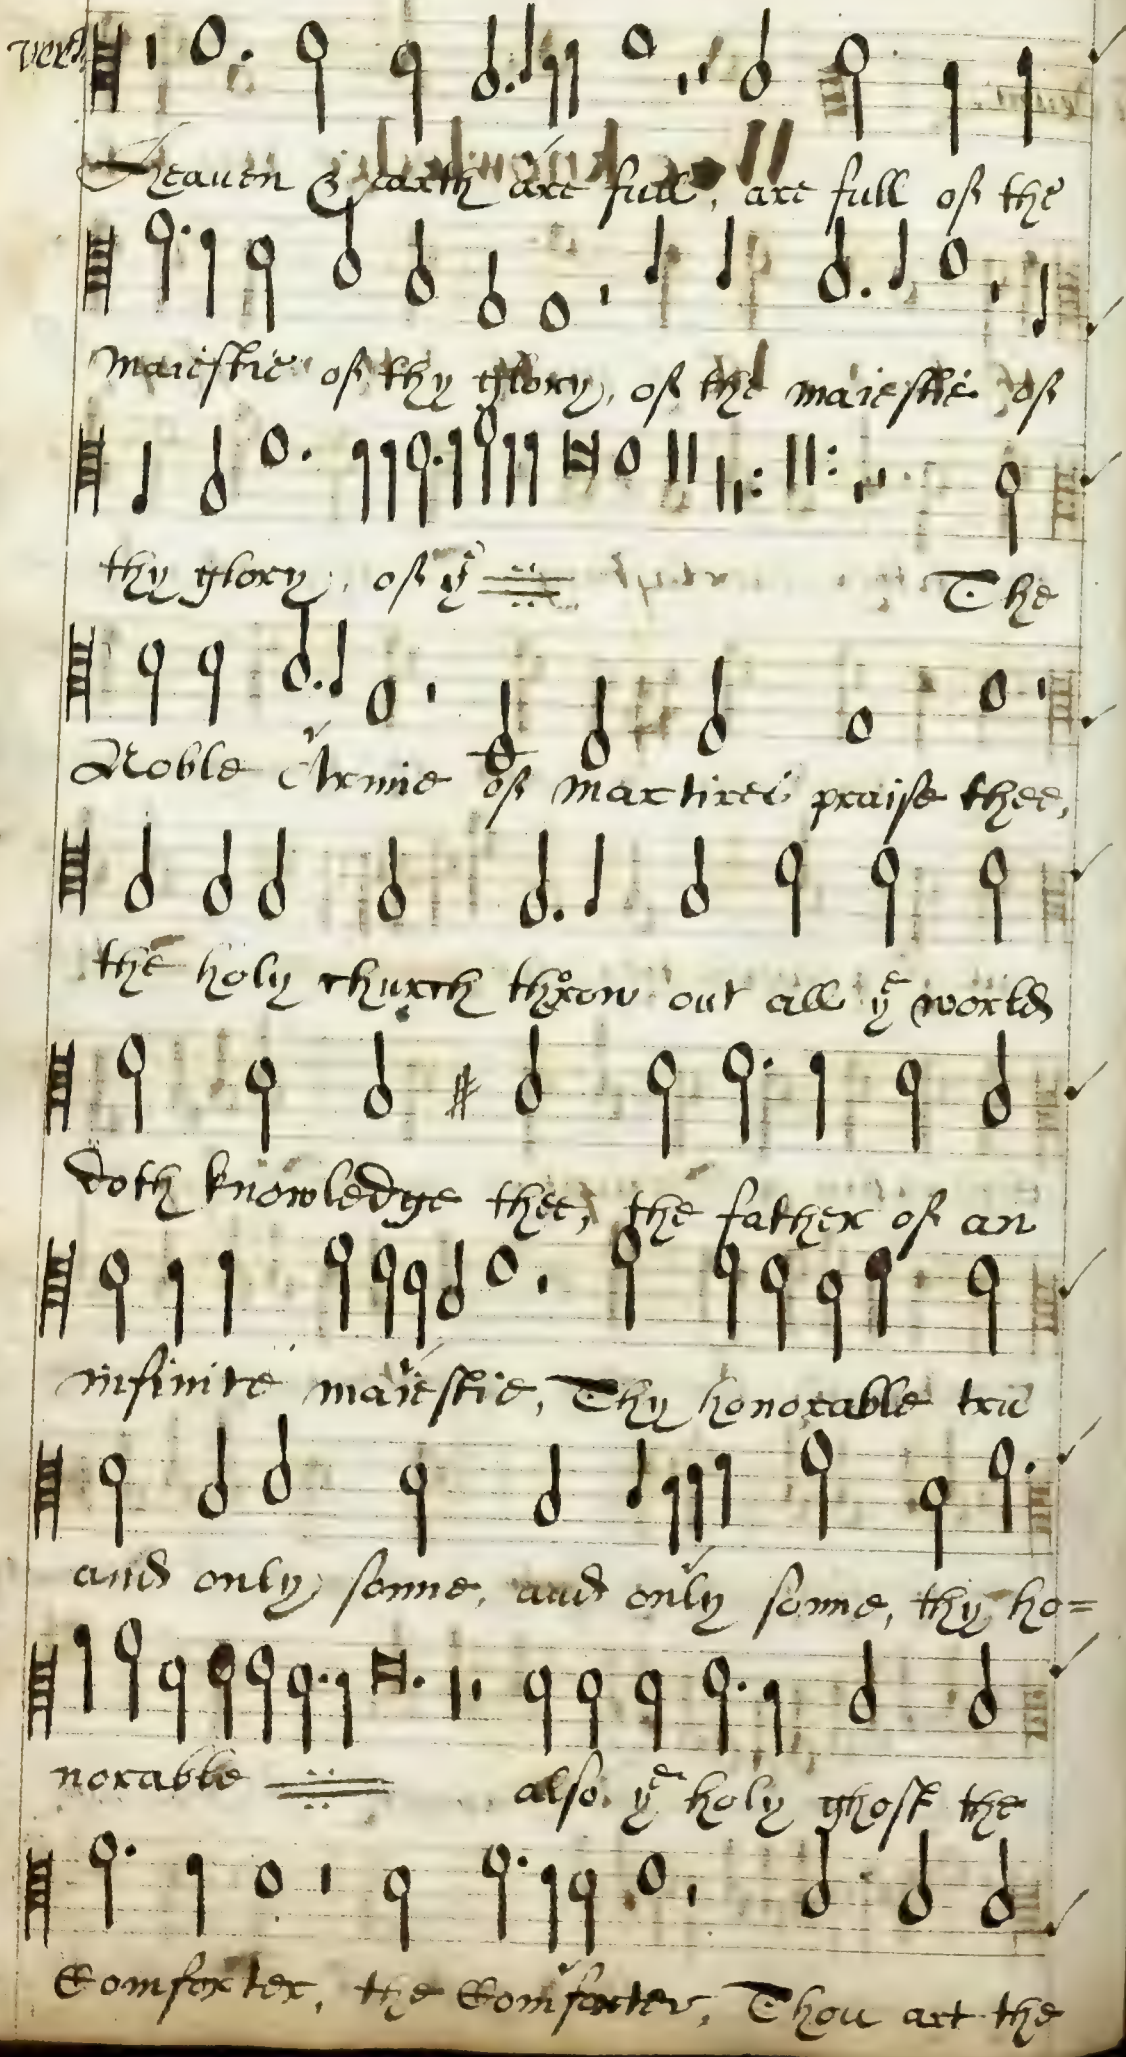 vers
Heaven & earth are full, are full of the
maiestie of thy glory, of the maiestie of
thy glory, of yᵉ The
Noble Armie of martires praise thee,
the holy church throw out all yᵉ world
doth knowledge thee, the father of an
infinite maiestie, Thy honorable tru
and only sonne, and only sonne, thy ho=
norable also yᵉ holy ghost the
Comforter, the Comforter, Thou art the